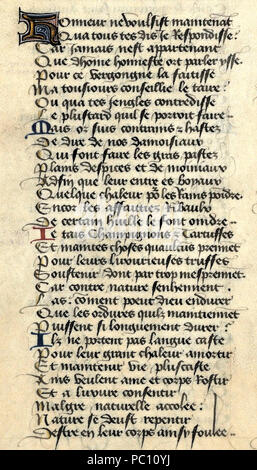 Honneur ne voulsist maintenāt
Qua tous tes dis je Respondisse:
Car jamais nest appartenant
Que dhome honneste oit parler ysse:
Pour ce vergongne la faitisse
Ma tousiours conseillie le taire:
Ou qua tes jengles contredisse
Le plustard quil se porroit faire
Mais or suis contrains & hastez
De dire de nos damoisiaux
Qui font faire les gras pastez
Plains despices et de moiniaux
Affin que leur entre es boyaux
Quelque chaleur
Encor les affaitties Ribaulx
De certain huille le font oindre
Et tais Champignons & Tartuffes
Et maintes choses quau lais premet
Pour leurs livourieuses truffes
Soustenir dont par trop mesprennēt
Car contre nature
Las: coment poeut dieu endurer
Que les ordures quilz maintiennēt
Puissent si longuement durer:
Ilz ne portent pas langue caste
Pour leur grant chaleur amortir
Et maintenir vie plus caste
Ains veulent ame et corps Rostir
Et a livoure consentir
Malgre naturele accolee:
Nature se deust repentir
Destre en leur corps ainsy foulee
alamy
PC10YJ